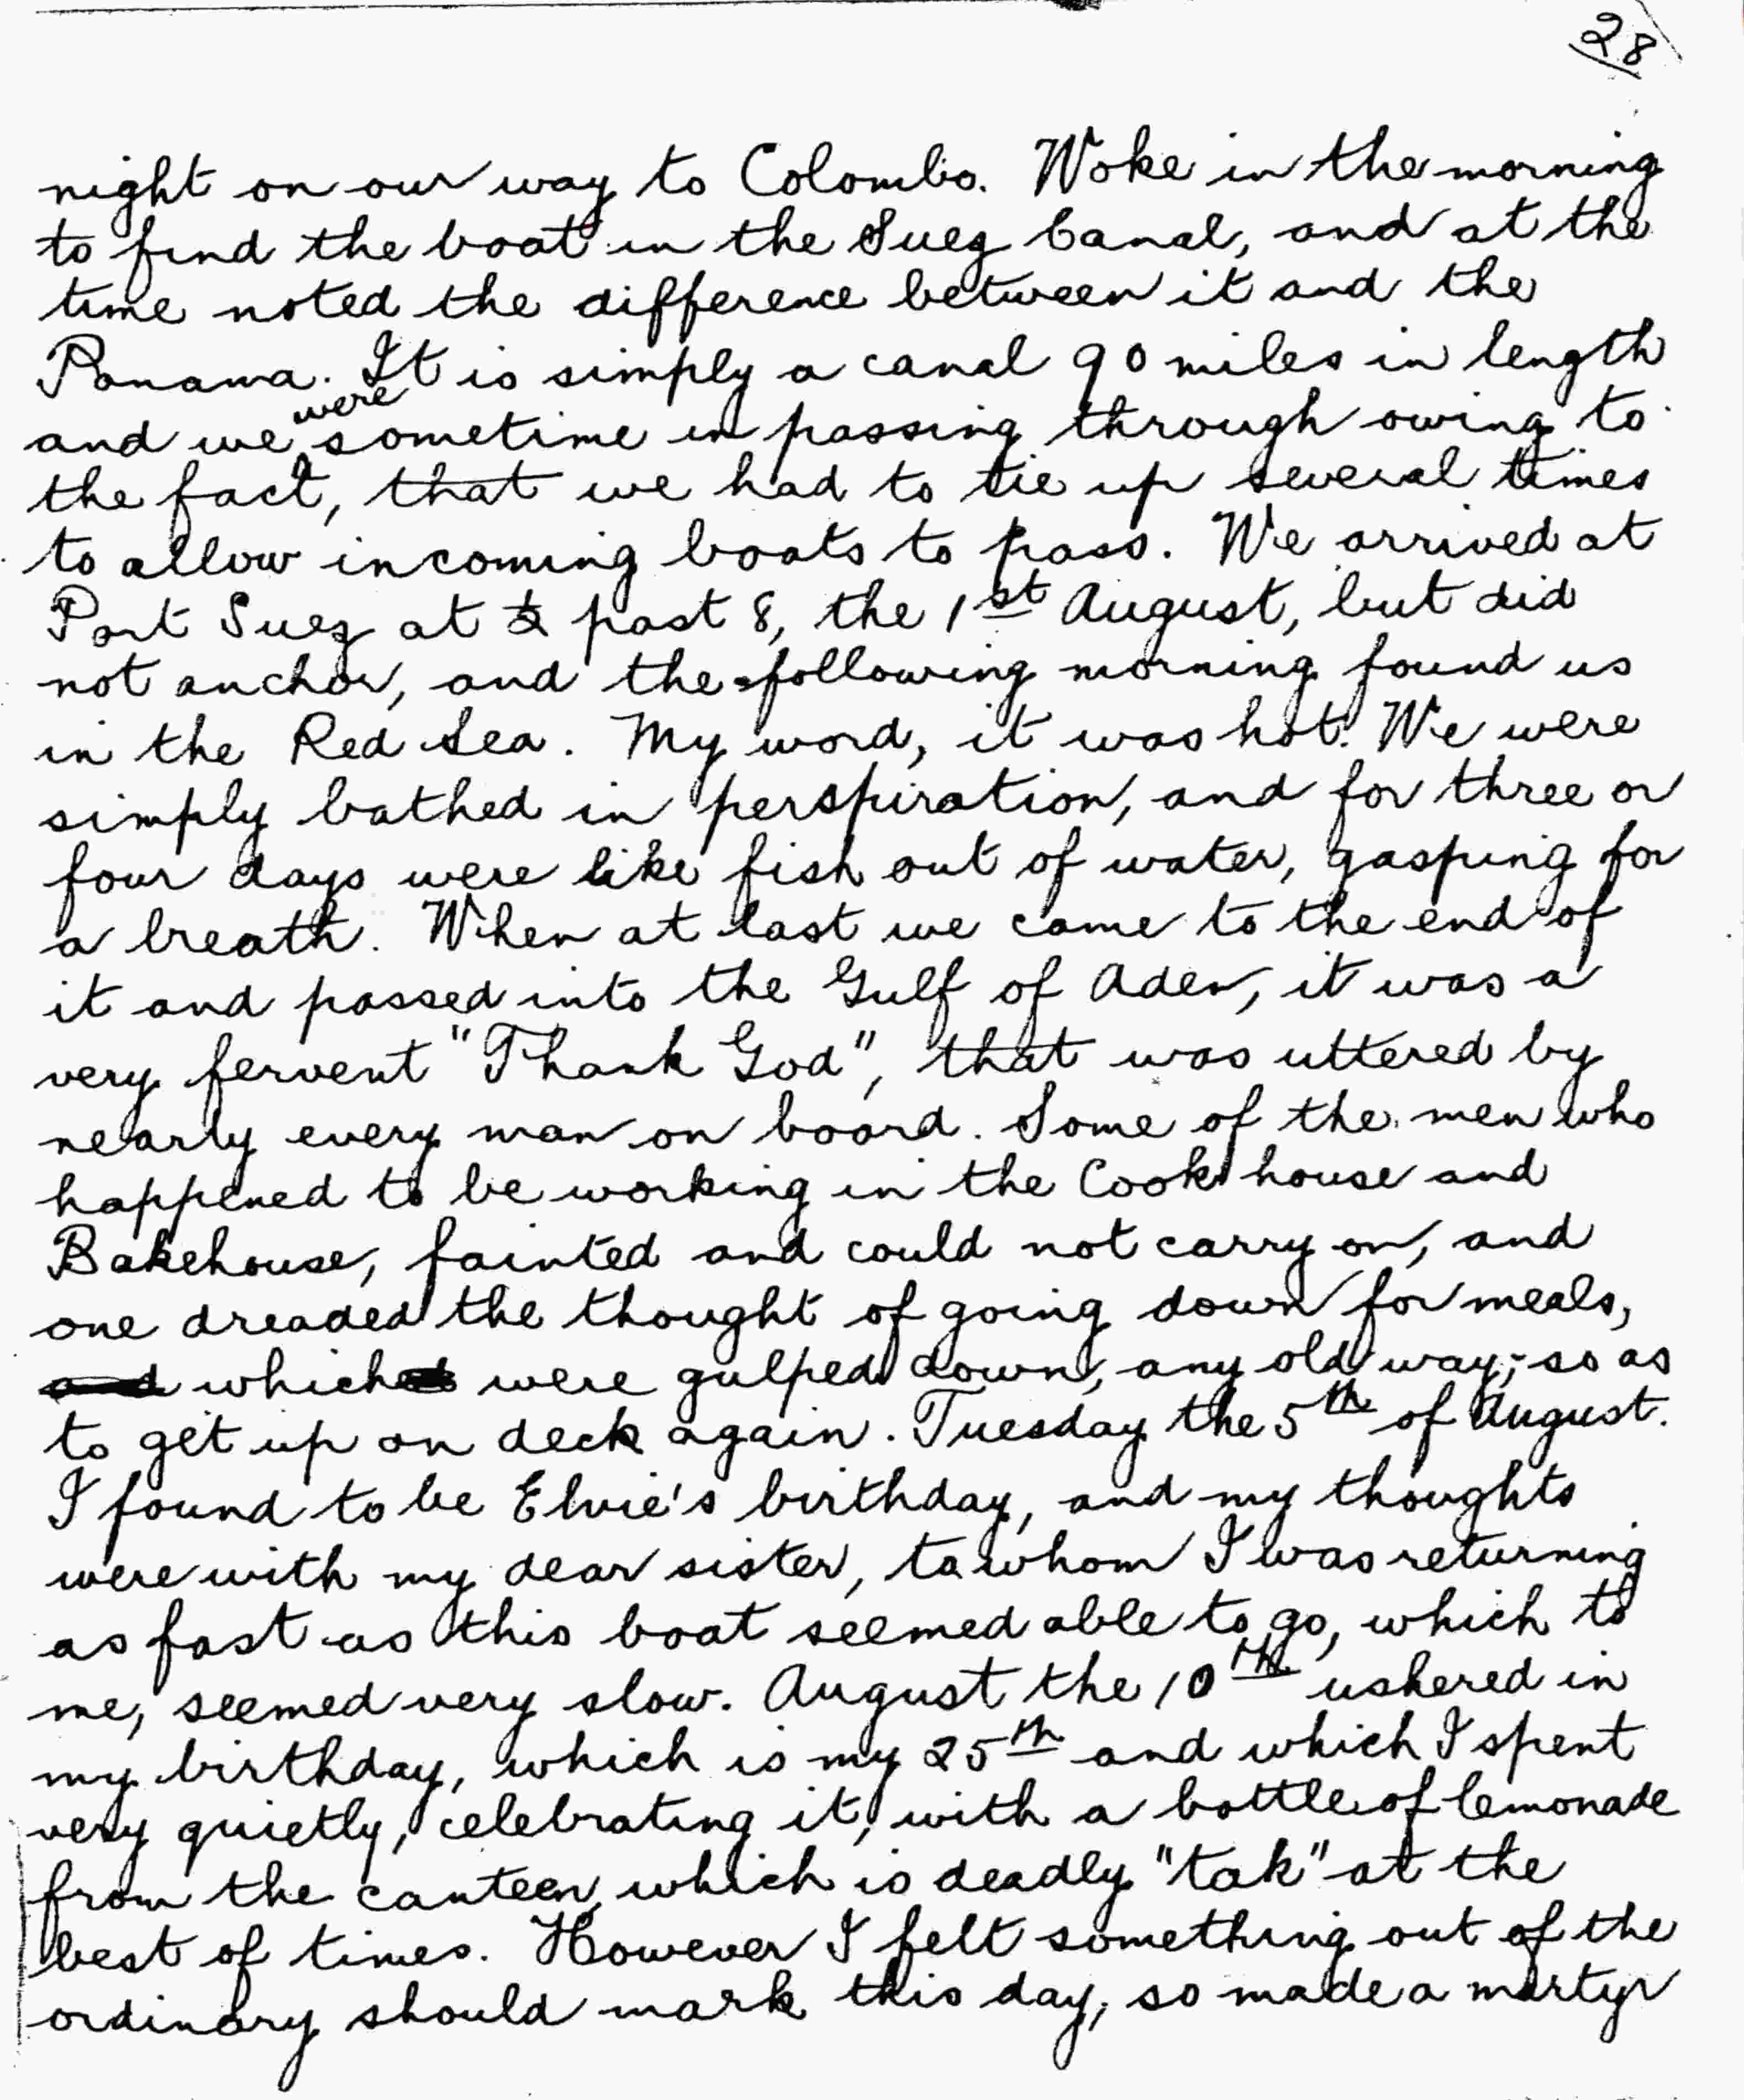 28
night on our way to Colombo. Woke in the morning
to find the boat in the Suez Canal, and at the
time noted the difference between it and the
Panama. It is simply a canal 90 miles in length
and we were sometime in passing through owing to
the fact, that we had to tie up several times
to allow incoming boats to pass. We arrived at
Port Suez at ½ past 8, the 1st August, but did
not anchor, and the following morning found us
in the Red Sea. My word, it was hot. We were
simply bathed in perspiration, and for three or
four days were like fish out of water, gasping for
a breath. When at last we came to the end of
it and passed into the Gulf of Aden, it was a
very fervent "Thank God", that was uttered by
nearly every man on board. Some of the men who
happened to be working in the Cook house and
Bakehouse, fainted and could not carry on, and
one dreaded the thought of going down for meals,
and which were gulped down, any old way, so as
to get up on deck again. Tuesday the 5th of August.
I found to be Elvie's birthday, and my thoughts
were with my dear sister, to whom I was returning
as fast as this boat seemed able to go, which to
me, seemed very slow. August the 10th ushered in
my birthday, which is my 25th and which I spent
very quietly, celebrating it, with a bottle of lemonade
from the canteen, which is deadly "tak" at the
best of times. However I felt something out of the
ordinary should mark this day, so made a martyr